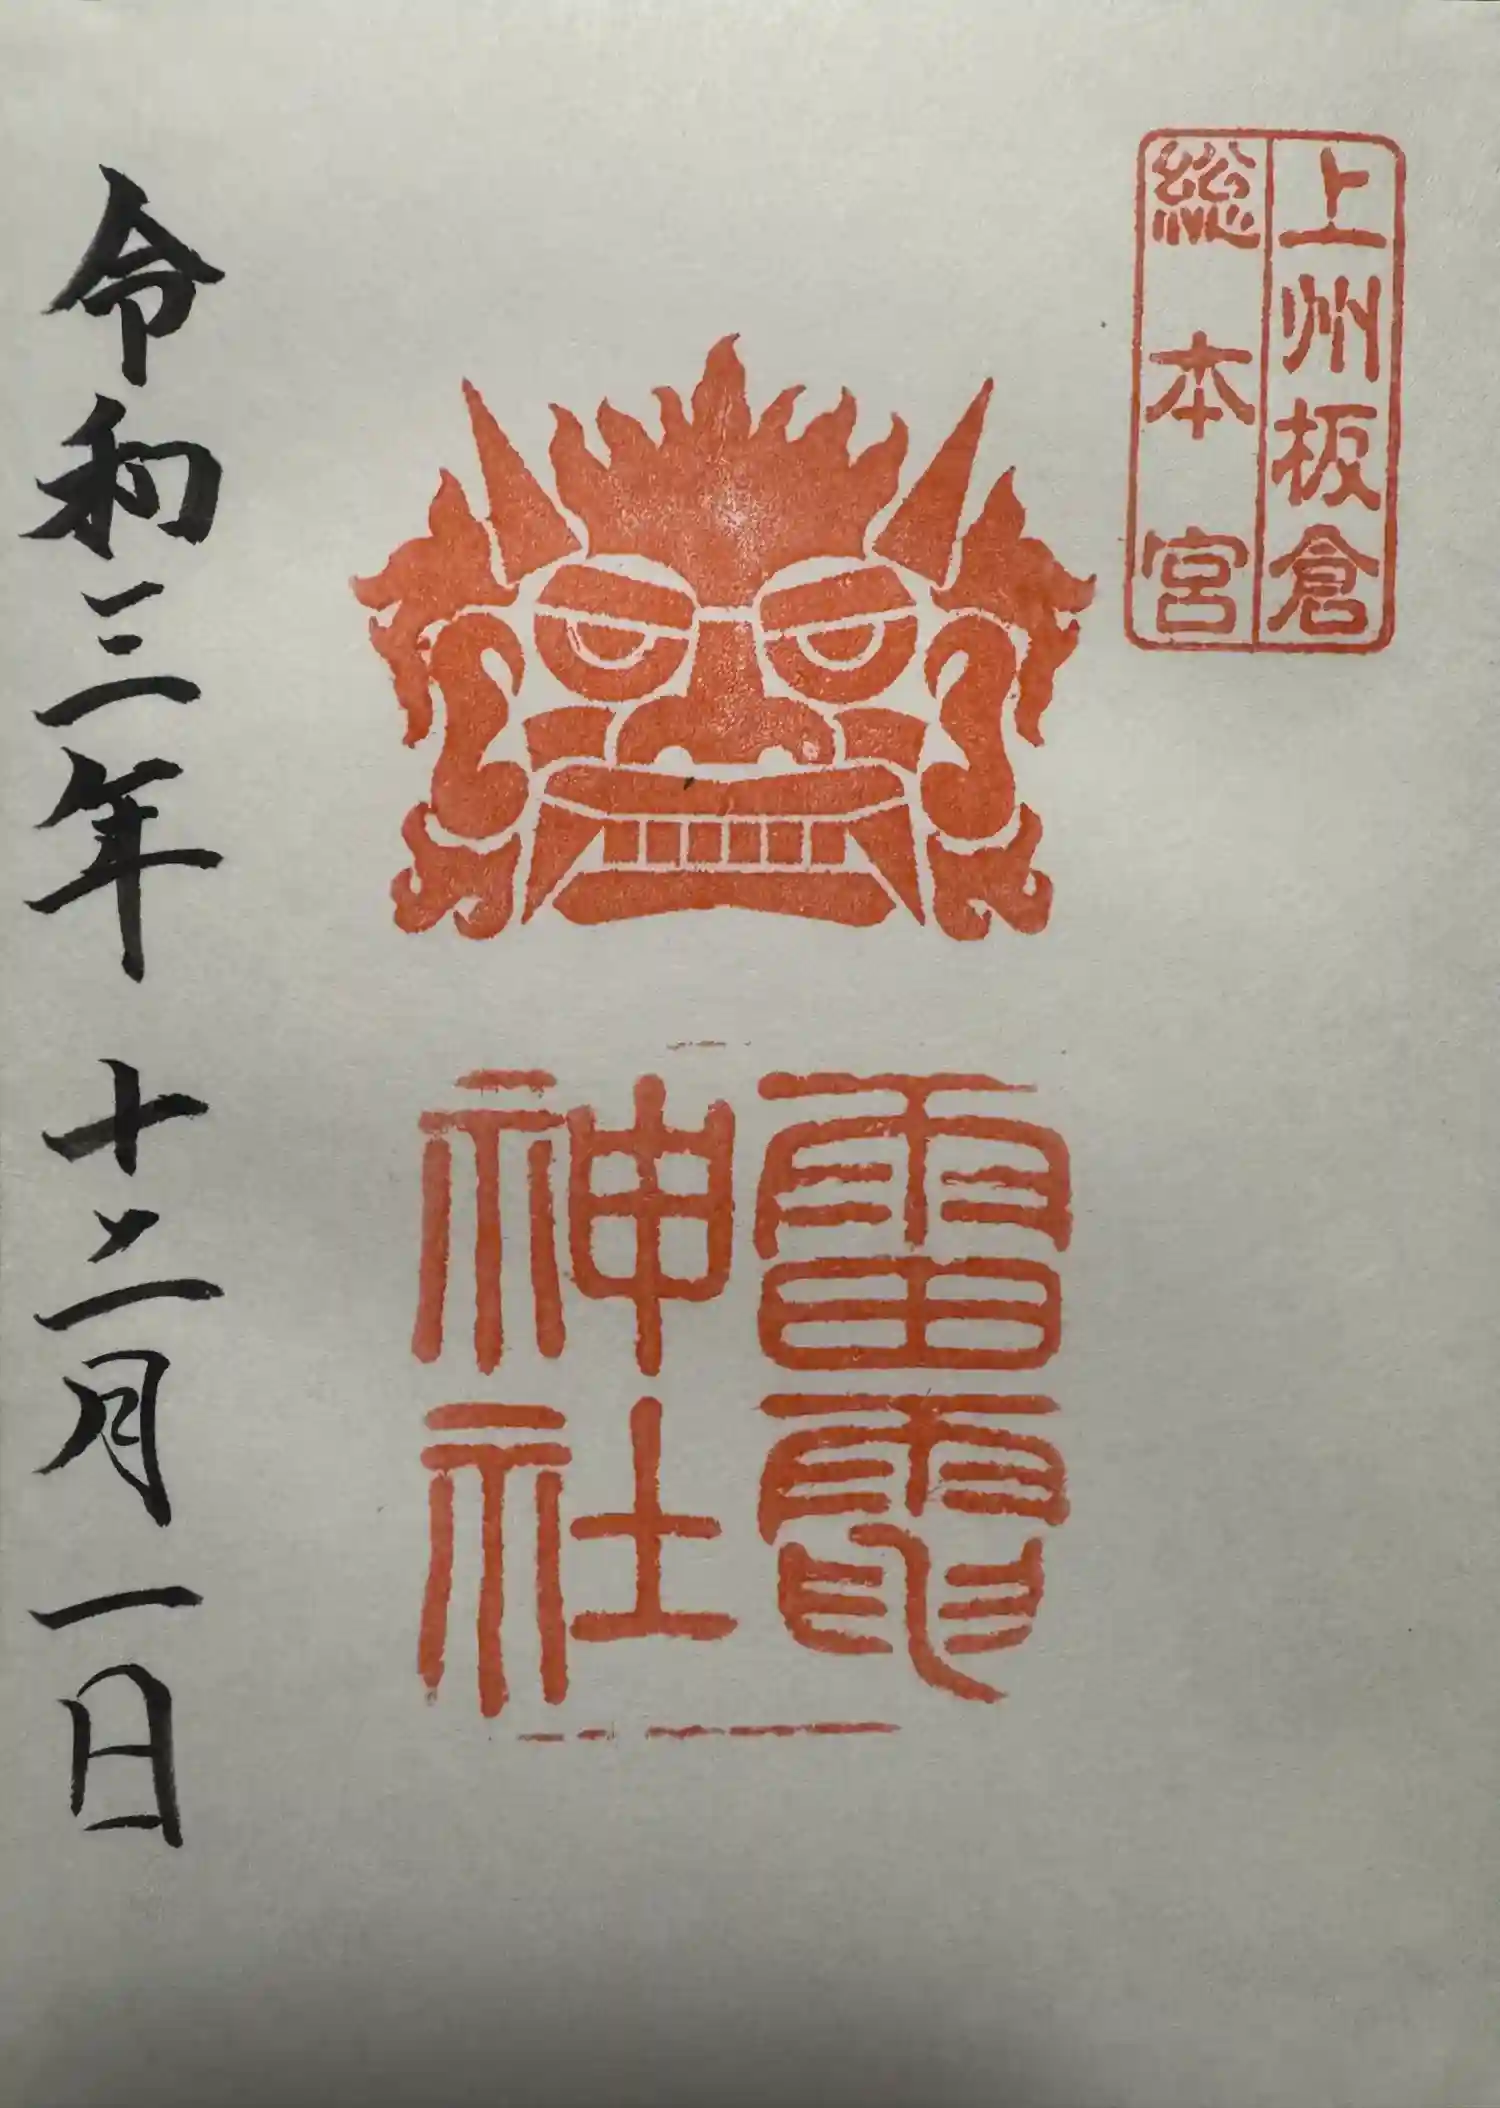 上州板倉
総本宮
雷電
神社
令和三年十二月一日